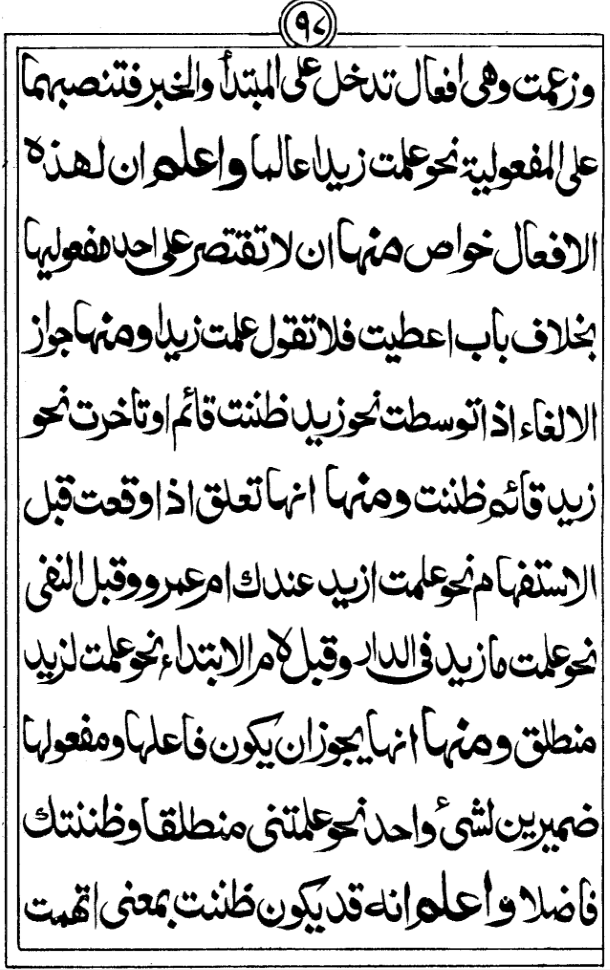 ٩٨
وزعمت وهى افعال تدخل على المبتدأ والخبر فتنصبهما
على المفعولية نحو علمت زيدا عالما واعلم ان لهذه
الافعال خواص منها ان لا تقتصر على احد مفعوليها
بخلاف باب اعطيت فلا تقول علمت زيدا ومنها جواز
الالغاء اذا توسطت نحو زيد ظننت قائم او تاخرت نحو
زيد قائم ظننت ومنها انها تعلق اذا وقعت قبل
الاستفهام نحو علمت ازيد عندك ام عمرو وقبل النفى
نحو علمت ما زيد فى الدار وقبل لام الابتداء نحو علمت لزيد
منطلق ومنها انها يجوز ان يكون فاعلها ومفعولها
ضميرين لشىء واحد نحو علمتنى منطلقا وظننتك
فاضلا واعلم انه قد يكون ظننت بمعنى اتهمت